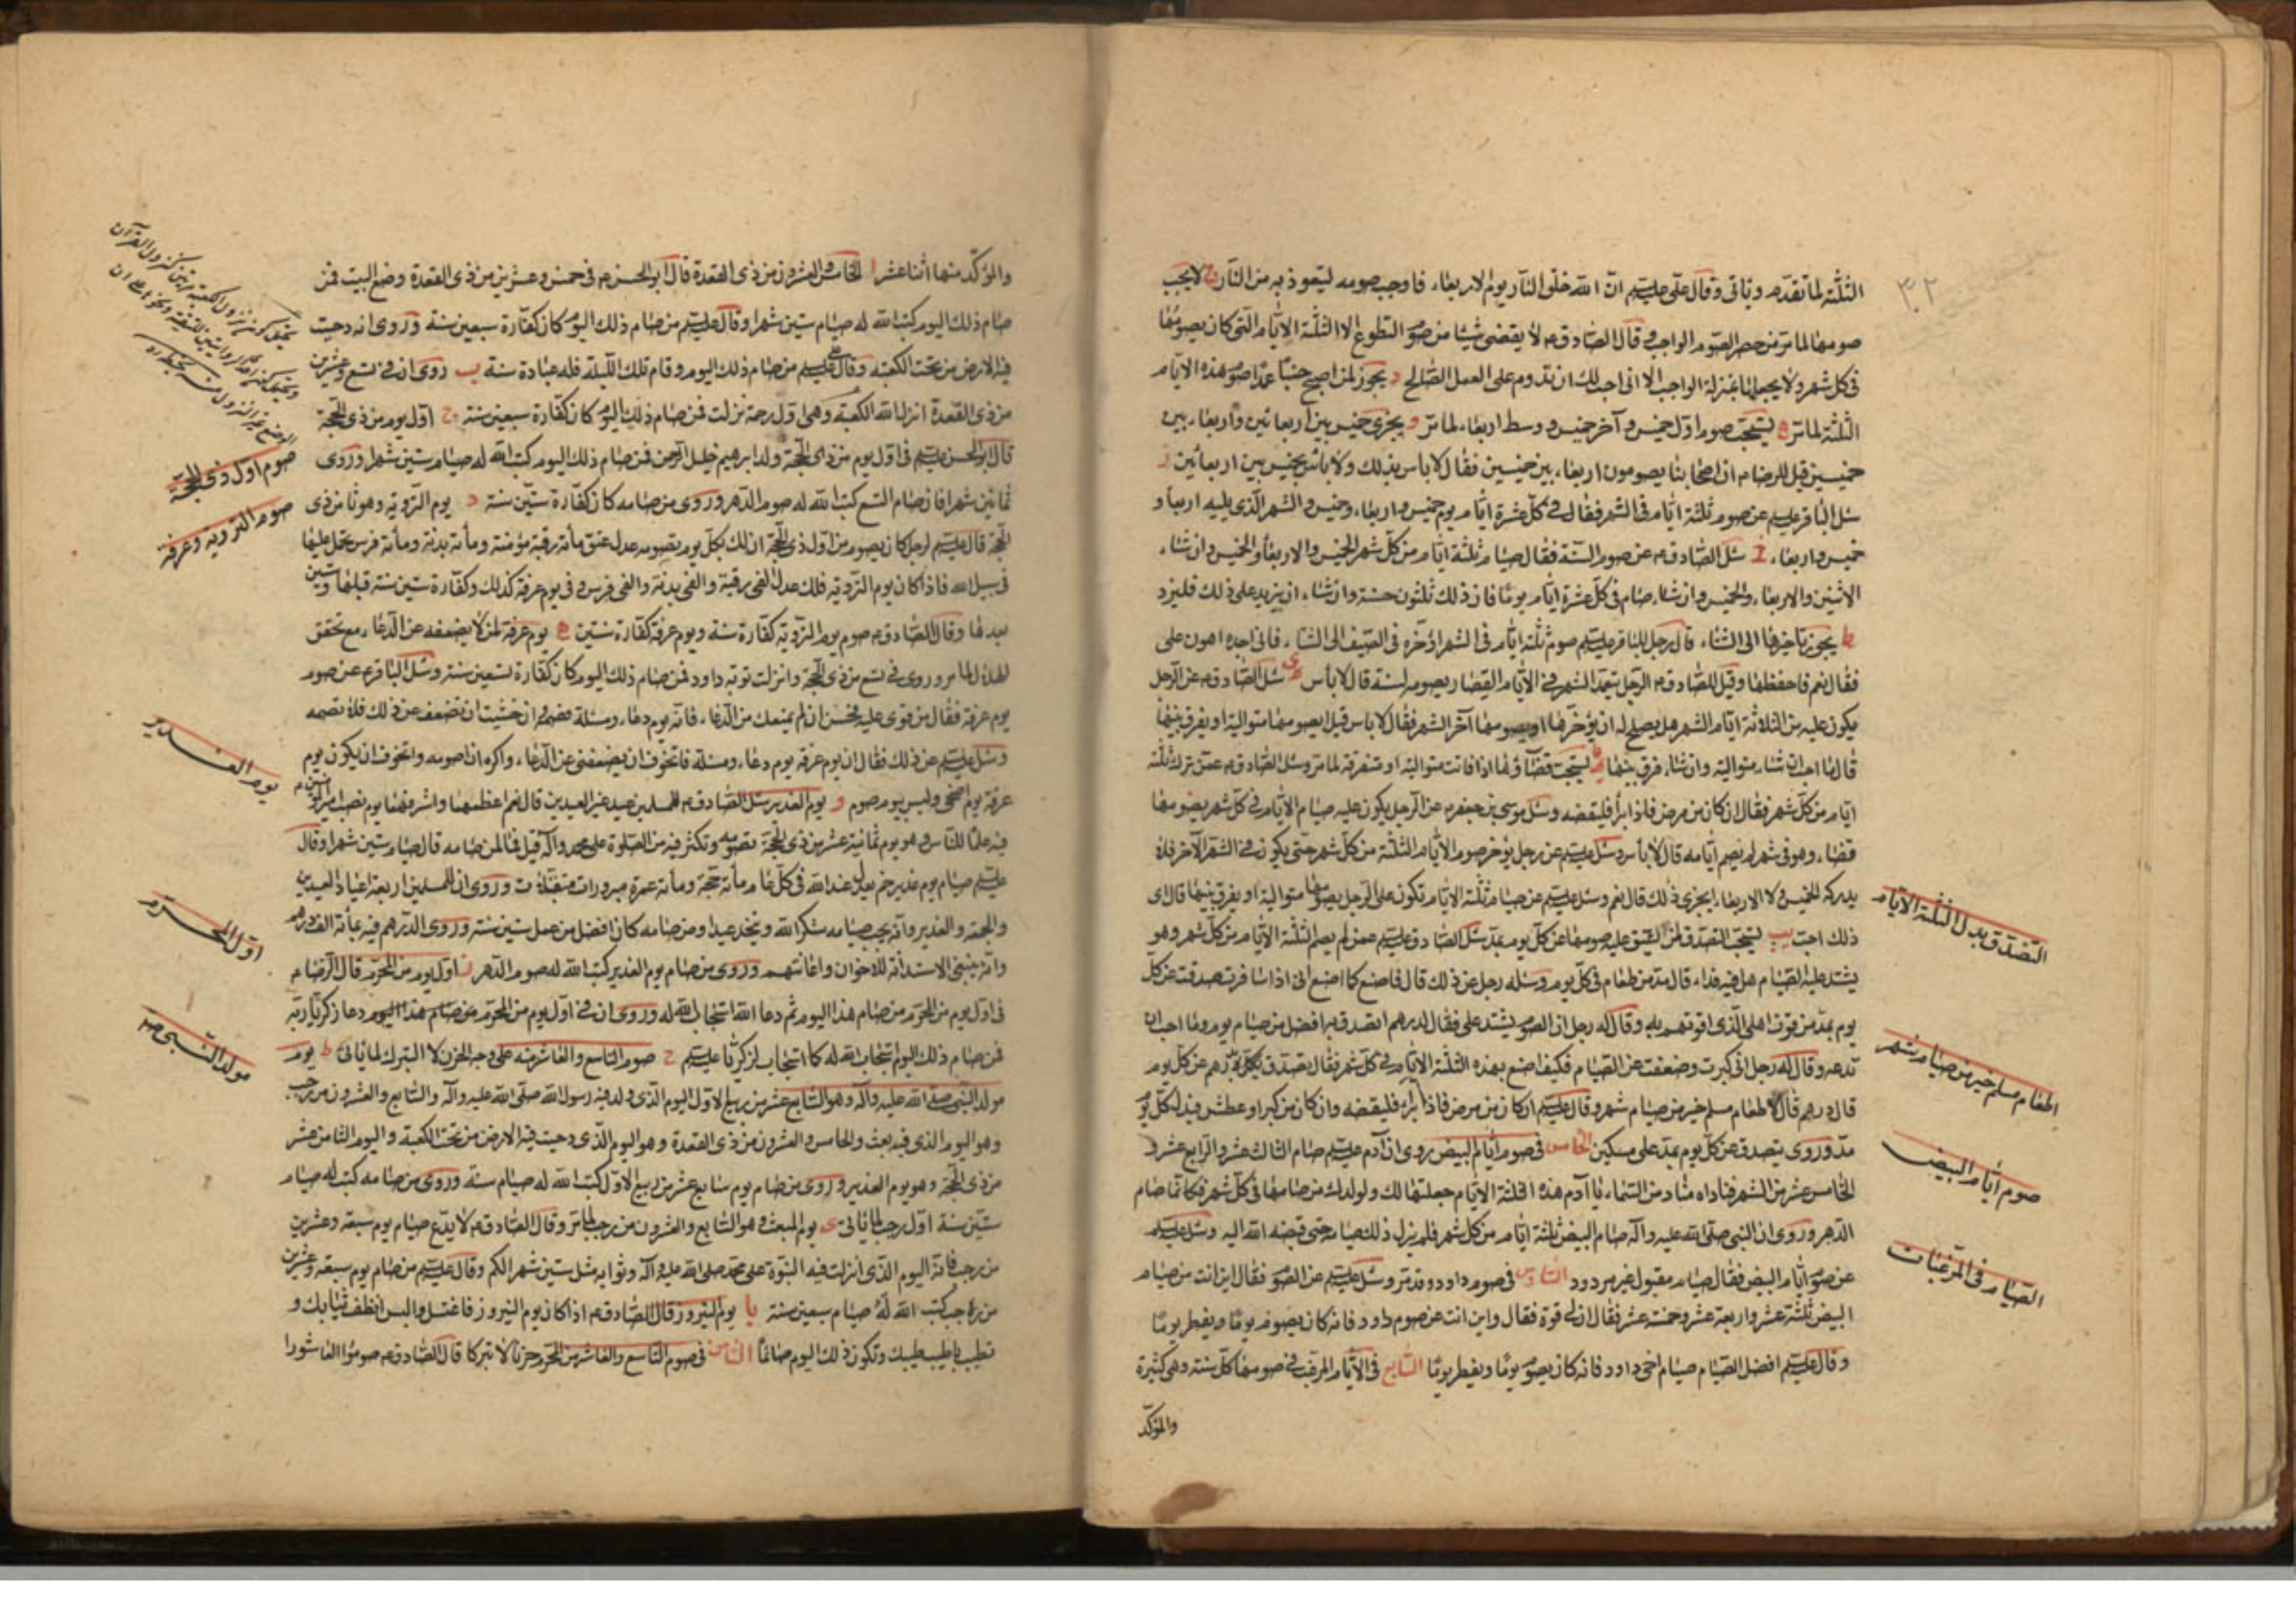 ٣٢
الثلثة لما تقدم وياتى وقال على عليتم ان الله خلق النار يوم الاربعاء فاوجب صومه ليتعوذ به من النار ج لا يجب
صومها لما مر من حصر الصوم الواجب و قال الصادق ع لا يقضى شيئا من صوم التطوع الا الثلثة الايام التى كان يصومها
فى كل شهر ولا يجعلها بمنزلة الواجب الا انى احب لك ان تدوم على العمل الصالح د يجوز لمن اصبح جنبا عمدا صوم هذه الايام
الثلثة لما مر ه يستحب صوم اول خميس و آخر خميس و وسط اربعاء لما مر و يجزى خميس بين اربعائين واربعاء بين
خميسين قيل للرضا ع ان اصحابنا يصومون اربعاء بين خميسين فقال لا باس بذلك ولا باس بخميس بين اربعائين ز
سئل الباقر عليتم عن صوم ثلثة ايام فى الشهر فقال فى كل عشرة ايام يوم خميس واربعاء وخميس والشهر الذى يليه اربعاء و
خميس واربعاء ح سئل الصادق ع عن صوم السنة فقال صيام ثلثة ايام من كل شهر الخميس والاربعاء والخميس وان شاء
الاثنين والاربعاء والخميس وان شاء صام فى كل عشرة ايام يوما فان ذلك ثلثون حسنة وان شاء ان يزيد على ذلك فليزد
ط يجوز تاخيرها الى الشتاء قال رجل للباقر عليتم صوم ثلثة ايام فى الشهر اؤخره فى الصيف الى الشتاء فانى اجده اهون على
فقال نعم فاحفظها وقيل للصادق ع الرجل يتعمد الشهر فى الايام القصار يصومه لسنة قال لا بأس ى سئل الصادق ع عن الرجل
يكون عليه من الثلاثة ايام الشهر هل يصلح له ان يؤخرها او يصومها آخر الشهر فقال لا باس قيل ايصومها متوالية او يفرق بينها
قال ما احب ان شاء متوالية وان شاء فرق بينها يا يستحب قضاؤها اذا فاتت متوالية او متفرقة لما مر وسئل الصادق ع عمن ترك ثلثة
ايام من كل شهر فقال ان كان من مرض فاذا برأ فليقضه وسئل موسى بن جعفر ع عن الرجل يكون عليه صيام الايام فى كل شهر يصومها
قضاء وهو فى شهر لم يصم ايامه قال لا بأس وسئل عليتم عن رجل يؤخر صوم الايام الثلثة من كل شهر حتى يكون فى الشهر الآخر فلا
يدركه الخميس ولا الاربعاء ايجزى ذلك قال نعم وسئل عليتم عن صيام ثلثة الايام تكون على الرجل يصومها متوالية او يفرق بينها قال اى
ذلك احب يب يستحب التصدق لمن يشق عليه صومها عن كل يوم بمد سئل الصادق عليتم عمن لم يصم الثلثة الايام من كل شهر وهو
يشتد عليه الصيام هل فيه فداء قال مد من طعام فى كل يوم وسئله رجل عن ذلك قال فاصنع كما اصنع انى اذا سافرت تصدقت عن كل
يوم بمد من قوت اهلى الذى اقوتهم به وقال له رجل ان الصوم يشتد على فقال لدرهم اتصدق به افضل من صيام يوم وما احب ان
تدعه وقال له رجل انى كبرت وضعفت عن الصيام فكيف اصنع بهذه الثلثة الايام فى كل شهر فقال تصدق بكل درهم عن كل يوم
قال درهم قال لاطعام مسلم خير من صيام شهر وقال عليتم ان كان من مرض فاذا برأ فليقضه وان كان من كبر او عطش فبدل كل يوم
مد وروى يتصدق عن كل يوم بمد على مسكين الخامس فى صوم ايام البيض روى ان آدم عليتم صام الثالث عشر والرابع عشر و
الخامس عشر من الشهر فناداه مناد من السماء يا آدم هذه الثلثة الايام جعلتها لك ولولدك من صامها فى كل شهر فكانما صام
الدهر وروى ان النبى صلى الله عليه وآله صام البيض ثلثة ايام من كل شهر فلم يزل ذلك صيامه حتى قبضه الله اليه وسئل عليتم
عن صوم ايام البيض فقال صيام مقبول غير مردود السادس فى صوم داود وقد مر وسئل عليتم عن الصوم فقال اين انت من صيام
البيض ثلثة عشر واربعة عشر وخمسة عشر فقال ان لى قوة فقال واين انت عن صوم داود فانه كان يصوم يوما ويفطر يوما
وقال عليتم افضل الصيام صيام اخى داود فانه كان يصوم يوما ويفطر يوما السابع فى الايام المرغب فى صومها كل سنة وهى كثيرة
والمؤكد
التصدق بدل الثلثة الايام
اطعام مسلم خير من صيام شهر
صوم ايام البيض
الصيام فى المرغبات
والمؤكد منها اثنا عشر ا الخامس والعشرون من ذى القعدة قال ابو الحسن ع فى خمس وعشرين من ذى القعدة وضع البيت فمن
صام ذلك اليوم كتب الله له صيام ستين شهرا وقال عليتم من صام ذلك اليوم كان كفارة سبعين سنة وروى انه دحيت
فيه الارض من تحت الكعبة وقال عليتم من صام ذلك اليوم وقام تلك الليلة فله عبادة سنة ب روى ان فى تسع وعشرين
من ذى القعدة انزل الله الكعبة وهى اول رحمة نزلت فمن صام ذلك اليوم كان كفارة سبعين سنة ج اول يوم من ذى الحجة
قال ابو الحسن عليتم فى اول يوم من ذى الحجة ولد ابرهيم خليل الرحمن فمن صام ذلك اليوم كتب الله له صيام ستين شهرا وروى
ثمانين شهرا فان صام التسع كتب الله له صوم الدهر وروى من صامه كان كفارة ستين سنة د يوم التروية وهو ثامن ذى
الحجة قال عليتم لرجل كان يصوم من اول ذى الحجة ان لك بكل يوم تصومه عدل عتق مأة رقبة مؤمنة ومأة بدنة ومأة فرس تحمل عليها
فى سبيل الله فاذا كان يوم التروية فلك عدل الفى رقبة والفى بدنة والفى فرس و فى يوم عرفة كذلك وكفارة ستين سنة قبلها وستين
بعدها وقال الصادق ع صوم يوم التروية كفارة سنة ويوم عرفة كفارة سنتين ه يوم عرفة لمن لا يضعفه عن الدعاء مع تحقق
الهلال لما مر وروى فى تسع من ذى الحجة وانزلت توبة داود فمن صام ذلك اليوم كان كفارة تسعين سنة وسئل الباقر ع عن صوم
يوم عرفة فقال من قوى عليه فحسن ان لم يمنعك من الدعاء فانه يوم دعاء ومسئلة فصمه وان خشيت ان تضعف عن ذلك فلا تصمه
وسئل عليتم عن ذلك فقال ان يوم عرفة يوم دعاء ومسئلة فاتخوف ان يضعفنى عن الدعاء واكره ان اصومه واتخوف ان يكون يوم
عرفة يوم اضحى وليس بيوم صوم و يوم الغدير سئل الصادق ع للمسلمين عيد غير العيدين قال نعم اعظمها واشرفها يوم نصب امير المؤمنين ع
فيه علما للناس و هو يوم ثمانية عشر من ذى الحجة تصومه وتكثر فيه من الصلوة على محمد وآله قيل فما لمن صامه قال صيام ستين شهرا وقال
عليتم صيام يوم غدير خم يعدل عند الله فى كل عام مأة حجة ومأة عمرة مبرورات متقبلات وروى ان للمسلمين اربعة اعياد العيدين
والجمعة والغدير وانه يجب صيامه شكرا لله ويتخذ عيدا ومن صامه كان افضل من عمل ستين سنة وروى الدرهم فيه بمأة الف درهم
وانه ينبغى الاستدانة للاخوان واعانتهم وروى من صام يوم الغدير كتب الله له صوم الدهر ز اول يوم من المحرم قال الرضا ع
فى اول يوم من المحرم من صام هذا اليوم ثم دعا الله استجاب الله له وروى ان فى اول يوم من المحرم من صام هذا اليوم دعا زكريا ربه
فمن صام ذلك اليوم استجاب الله له كما استجاب لزكريا عليتم ح صوم التاسع والعاشر منه على وجه الحزن لا التبرك لما ياتى ط يوم
مولد النبى صلى الله عليه وآله وهو السابع عشر من ربيع الاول اليوم الذى ولد فيه رسول الله صلى الله عليه وآله والسابع والعشرون من رجب
وهو اليوم الذى فيه بعث والخامس والعشرون من ذى القعدة وهو اليوم الذى دحيت فيه الارض من تحت الكعبة واليوم الثامن عشر
من ذى الحجة وهو يوم الغدير وروى من صام يوم سابع عشر من ربيع الاول كتب الله له صيام سنة وروى من صامه كتب له صيام
ستين سنة اول رجب لما ياتى ى يوم المبعث وهو السابع والعشرون من رجب لما مر وقال الصادق ع لا يدع صيام يوم سبعة وعشرين
من رجب فانه اليوم الذى انزلت فيه النبوة على محمد صلى الله عليه وآله وثوابه مثل ستين شهرا لكم وقال عليتم من صام يوم سبعة وعشرين
من رجب كتب الله له صيام سبعين سنة يا يوم النيروز قال الصادق ع اذا كان يوم النيروز فاغتسل والبس انظف ثيابك و
تطيب باطيب طيبك وتكون ذلك اليوم صائما الثامن فى صوم التاسع والعاشر من المحرم حزنا لا تبركا قال الصادق ع صوموا العاشورا
صوم اول ذى الحجة
صوم التروية وعرفة
يوم الغدير
اول المحرم
مولد النبى صه